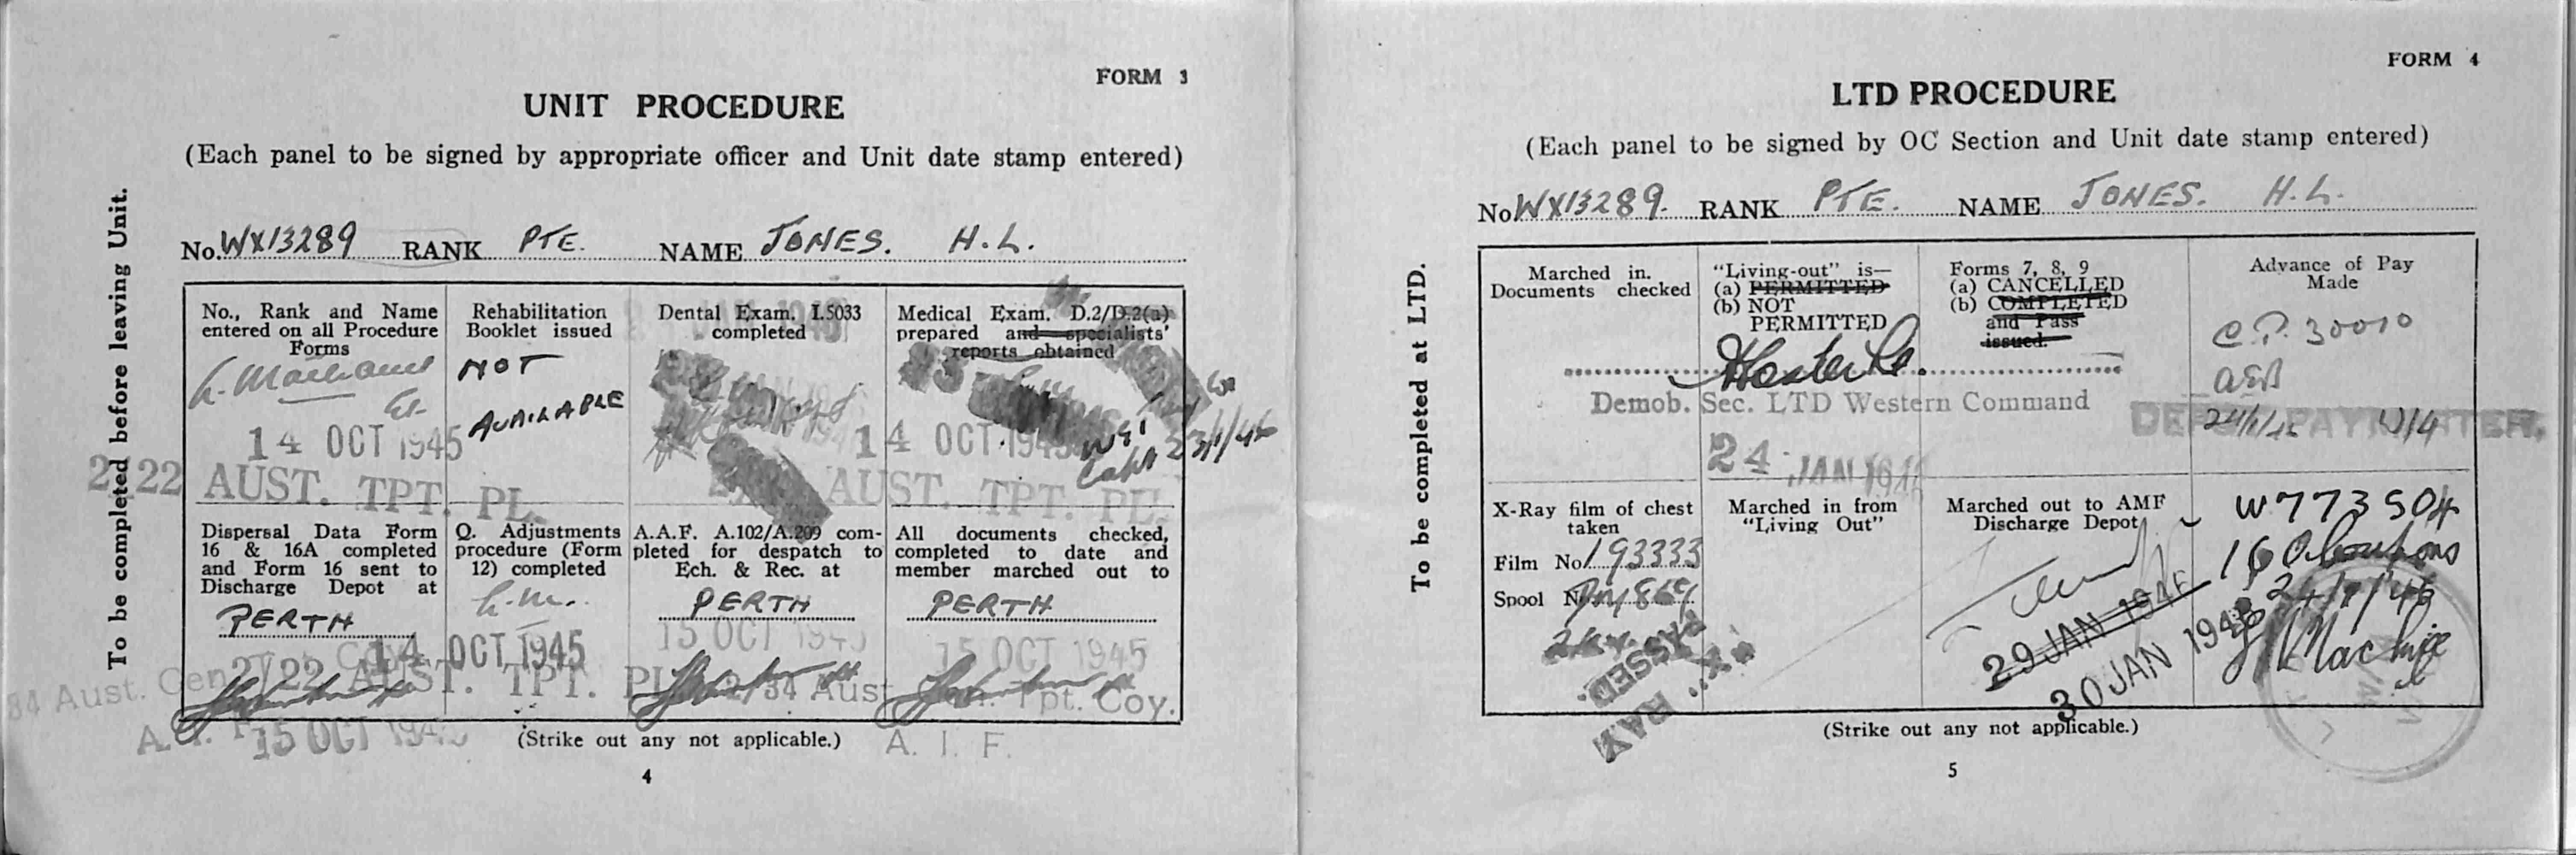 FORM 3
UNIT PROCEDURE
(Each panel to be signed by appropriate officer and Unit date stamp entered)
To be completed before leaving Unit.
No. WX13289 RANK PTE. NAME JONES. H.L.
No., Rank and Name
entered on all Procedure
Forms
14 OCT 1945
2/22 AUST. TPT. PL.
Rehabilitation
Booklet issued
NOT
AVAILABLE
Dental Exam. I.5033
completed
Medical Exam. D.2/D.2(a)
prepared and specialists'
reports obtained
14 OCT 1945
AUST. TPT. PL.
Capt 23/1/46
Dispersal Data Form
16 & 16A completed
and Form 16 sent to
Discharge Depot at
PERTH
15 OCT 1945
Q. Adjustments
procedure (Form
12) completed
14 OCT 1945
2/22 AUST. TPT. PL.
A.A.F. A.102/A.209 com-
pleted for despatch to
Ech. & Rec. at
PERTH
15 OCT 1945
All documents checked,
completed to date and
member marched out to
PERTH
15 OCT 1945
34 Aust. Gen.
2/34 Aust. Tpt. Coy.
A. I. F.
(Strike out any not applicable.)
4
FORM 4
LTD PROCEDURE
(Each panel to be signed by OC Section and Unit date stamp entered)
To be completed at LTD.
No WX13289. RANK PTE. NAME JONES. H.L.
Marched in.
Documents checked
"Living-out" is—
(a) PERMITTED
(b) NOT
PERMITTED
Forms 7, 8, 9
(a) CANCELLED
(b) COMPLETED
and Pass
issued.
Demob. Sec. LTD Western Command
24 JAN 1946
Advance of Pay
Made
C.P. 30010
24/1/46
X-Ray film of chest
taken
Film No 193333
Spool No
X. RAY
PASSED.
Marched in from
"Living Out"
Marched out to AMF
Discharge Depot
29 JAN 1946
30 JAN 1946
W773504
160 Coupons
(Strike out any not applicable.)
5